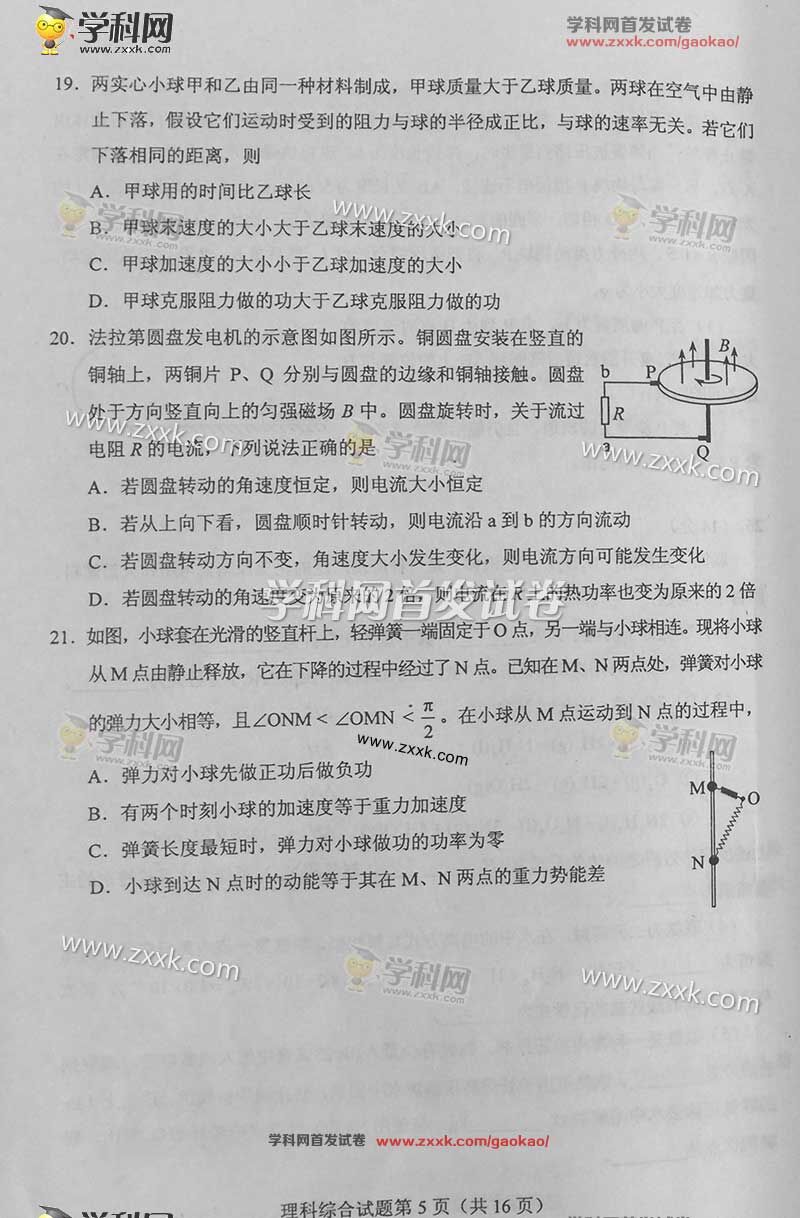 学科网
www.zxxk.com
学科网首发试卷
www.zxxk.com/gaokao/
19. 两实心小球甲和乙由同一种材料制成，甲球质量大于乙球质量。两球在空气中由静
止下落，假设它们运动时受到的阻力与球的半径成正比，与球的速率无关。若它们
下落相同的距离，则
A．甲球用的时间比乙球长
B．甲球末速度的大小大于乙球末速度的大小
C．甲球加速度的大小小于乙球加速度的大小
D．甲球克服阻力做的功大于乙球克服阻力做的功
学科网
zxxk.com
www.zxxk.com
学科网
zxxk.com
20. 法拉第圆盘发电机的示意图如图所示。铜圆盘安装在竖直的
铜轴上，两铜片 P、Q 分别与圆盘的边缘和铜轴接触。圆盘
处于方向竖直向上的匀强磁场 B 中。圆盘旋转时，关于流过
电阻 R 的电流，下列说法正确的是
A．若圆盘转动的角速度恒定，则电流大小恒定
B．若从上向下看，圆盘顺时针转动，则电流沿 a 到 b 的方向流动
C．若圆盘转动方向不变，角速度大小发生变化，则电流方向可能发生变化
D．若圆盘转动的角速度变为原来的2倍，则电流在 R 上的热功率也变为原来的2倍
b
P
B
R
a
Q
www.zxxk.com
学科网
zxxk.com
www.zxxk.com
学科网首发试卷
21. 如图，小球套在光滑的竖直杆上，轻弹簧一端固定于O点，另一端与小球相连。现将小球
从M点由静止释放，它在下降的过程中经过了N点。已知在M、N两点处，弹簧对小球
的弹力大小相等，且∠ONM < ∠OMN < π/2。在小球从M点运动到N点的过程中，
A．弹力对小球先做正功后做负功
B．有两个时刻小球的加速度等于重力加速度
C．弹簧长度最短时，弹力对小球做功的功率为零
D．小球到达N点时的动能等于其在M、N两点的重力势能差
M
O
N
学科网
zxxk.com
www.zxxk.com
学科网
zxxk.com
www.zxxk.com
学科网
zxxk.com
www.zxxk.com
学科网首发试卷 www.zxxk.com/gaokao/
理科综合试题第 5 页（共 16 页）